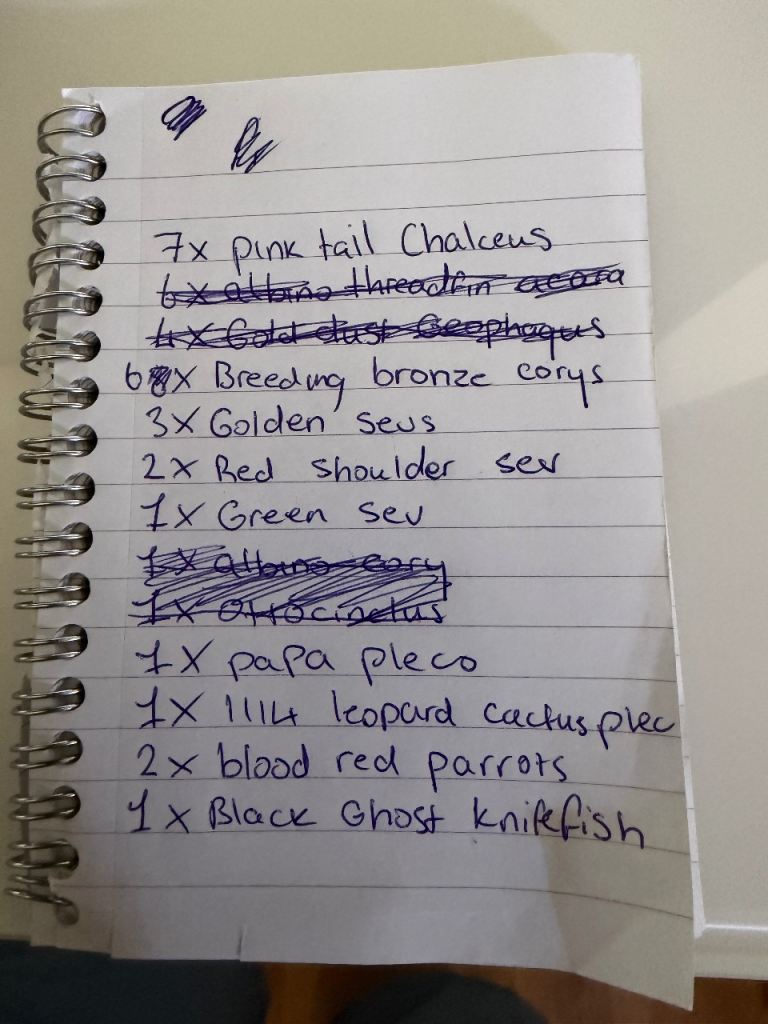 7x pink tail Chalceus
6x albino threadfin acara
4x Gold dust Geophagus
6 x Breeding bronze corys
3x Golden sevs
2x Red shoulder sev
1x Green sev
1x albino cory
1x ottocinctus
1x papa pleco
1x 1114 leopard cactus plec
2x blood red parrots
1x Black Ghost knifefish